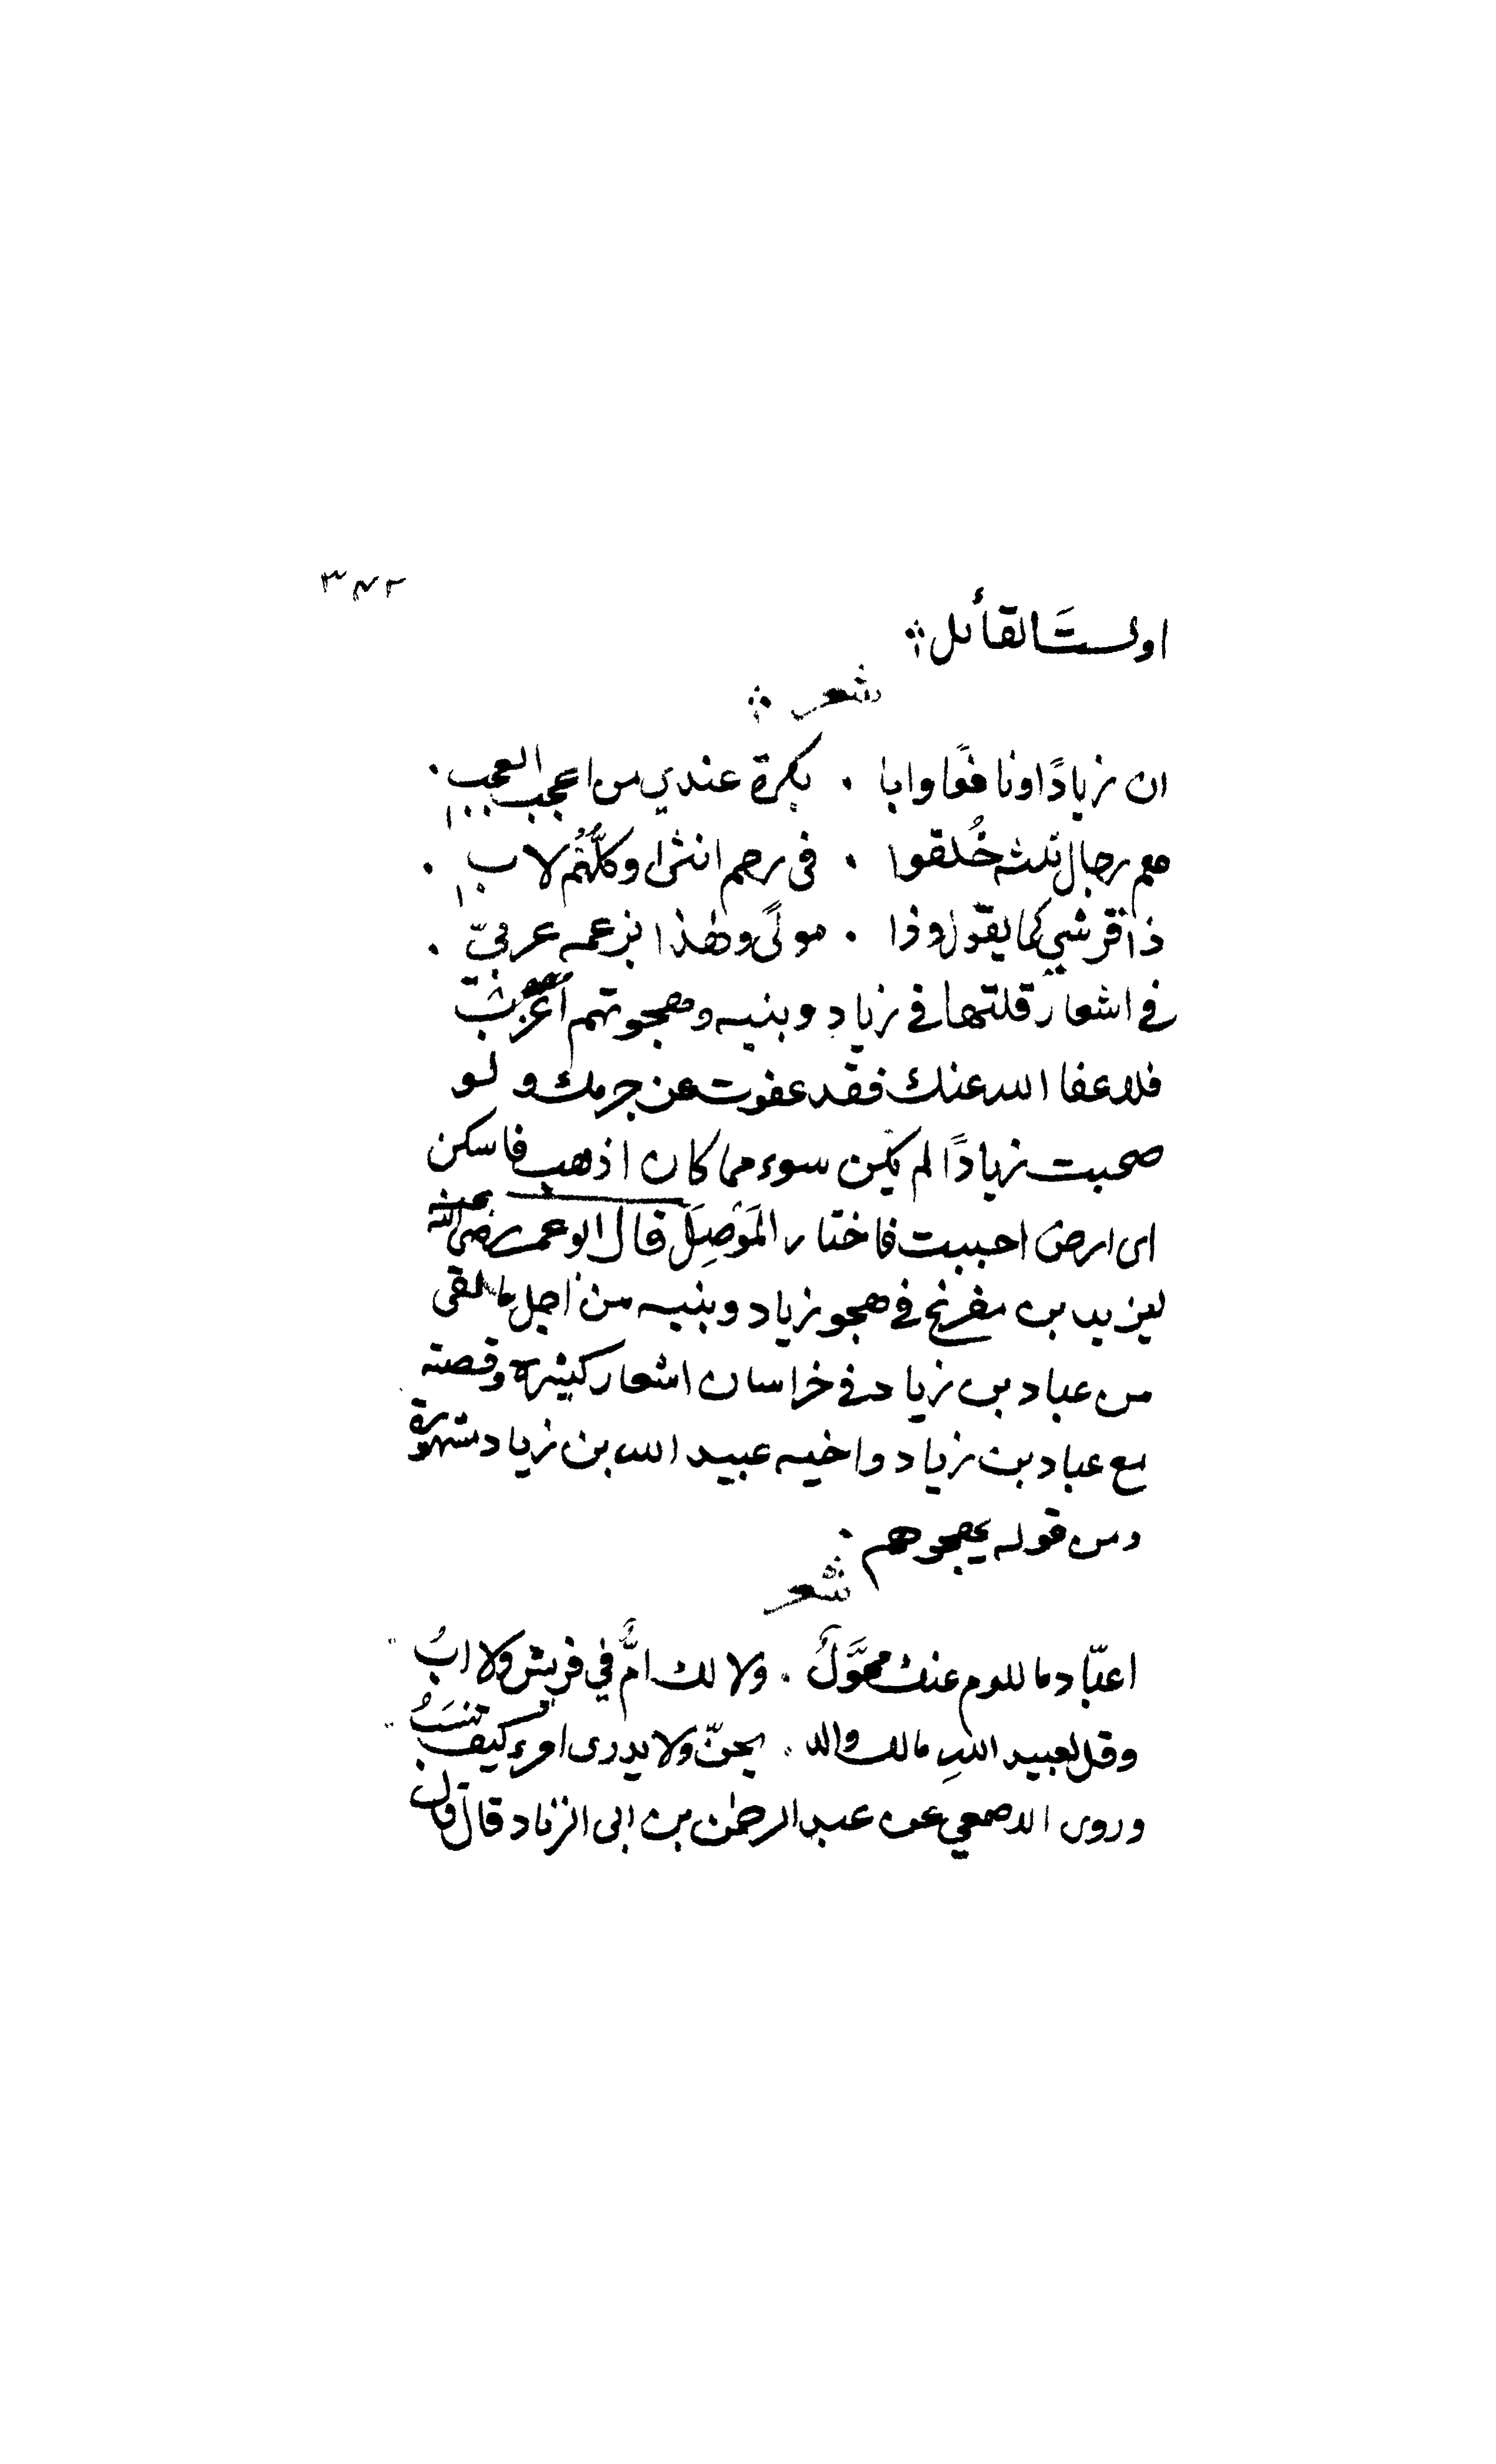 ٣٨٢
اولستَ القائل
شعر
ان زيادًا ونافعًا وابا . بكرة عندي من اعجب العجب .
هم رجال ثلثة خُلقوا . فى رحم انثى وكلُّهُم لاب .
ذا قرشي كما يقول وذا . مولًى وهذا بزعمه عربيّ .
في اشعار قلتها في زياد وبنيه وهجوتهم اغرُبْ
فلا عفا الله عنك فقد عفوت عن جرمك ولو
صحبت زيادًا لم يكن سوء مما كان اذهب فاسكن
اى ارض احببت فاختار المَوْصِلَ قال ابو عمر رضى الله عنه
ليزيد بن مفرغ في هجو زياد وبنيه من اجل ما لقى
من عباد بن زياد في خراسان اشعار كثيرة وقصته
مع عباد بن زياد واخيه عبيد الله بن زياد مشهورة
ومن قوله يهجوهم .
شعر
اعبّاد ما للوم عنك محوَّلُ . ولا لك امٌّ في قريش ولا ابُ
وقل لعبيد اللهِ مالك والد . بحقّ ولا يدرى امرء كيف تنسَبُ
وروى الاصمعي عن عبد الرحمٰن بن ابى الزناد قال قال